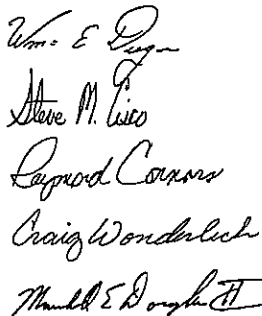 Wm. E Dugan
Steve M. Cisco
Raymond Connors
Craig Wonderlich
E Douglas III